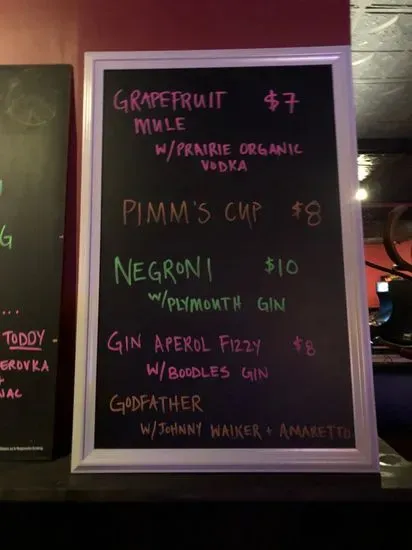 GRAPEFRUIT $7
MULE
W/PRAIRIE ORGANIC
VODKA
PIMM'S CUP $8
NEGRONI $10
W/PLYMOUTH GIN
GIN APEROL FIZZY $8
W/BOODLES GIN
GODFATHER
W/JOHNNY WALKER + AMARETTO
G
...
TODDY
EROVKA
+
NAC